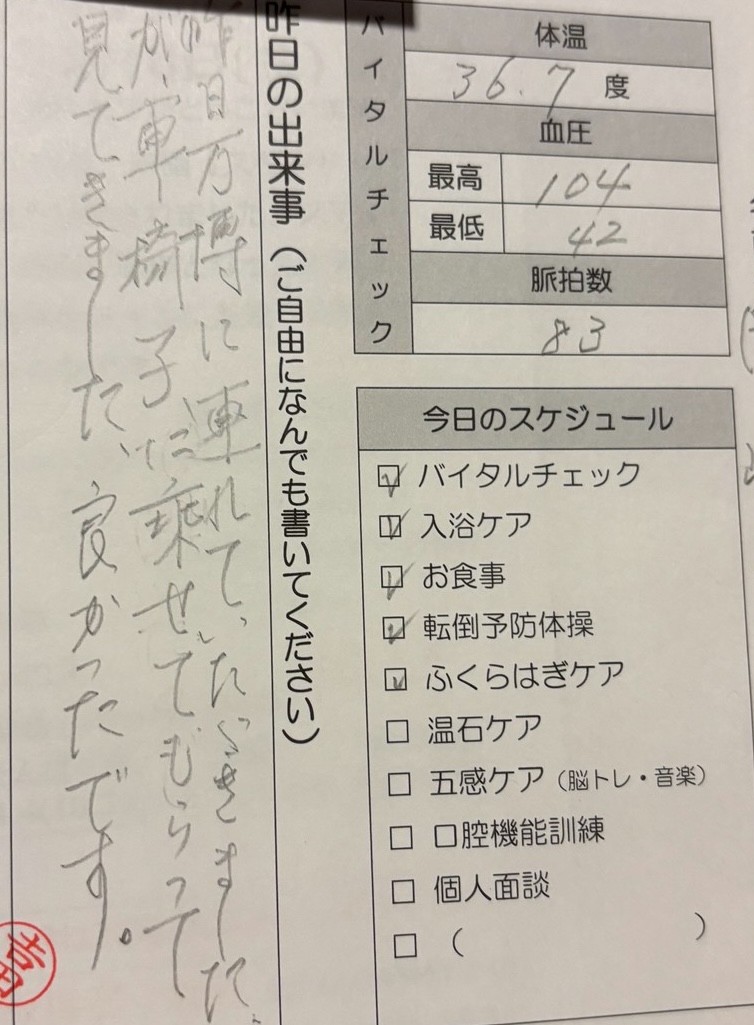 バイタルチェック
体温
36.7 度
血圧
最高 104
最低 42
脈拍数
83
今日のスケジュール
バイタルチェック
入浴ケア
お食事
転倒予防体操
ふくらはぎケア
温石ケア
五感ケア（脳トレ・音楽）
口腔機能訓練
個人面談
（ ）
昨日の出来事（ご自由になんでも書いてください）
昨日万博に連れていただきました
が、車椅子に乗せてもらって
見てきました、良かったです。